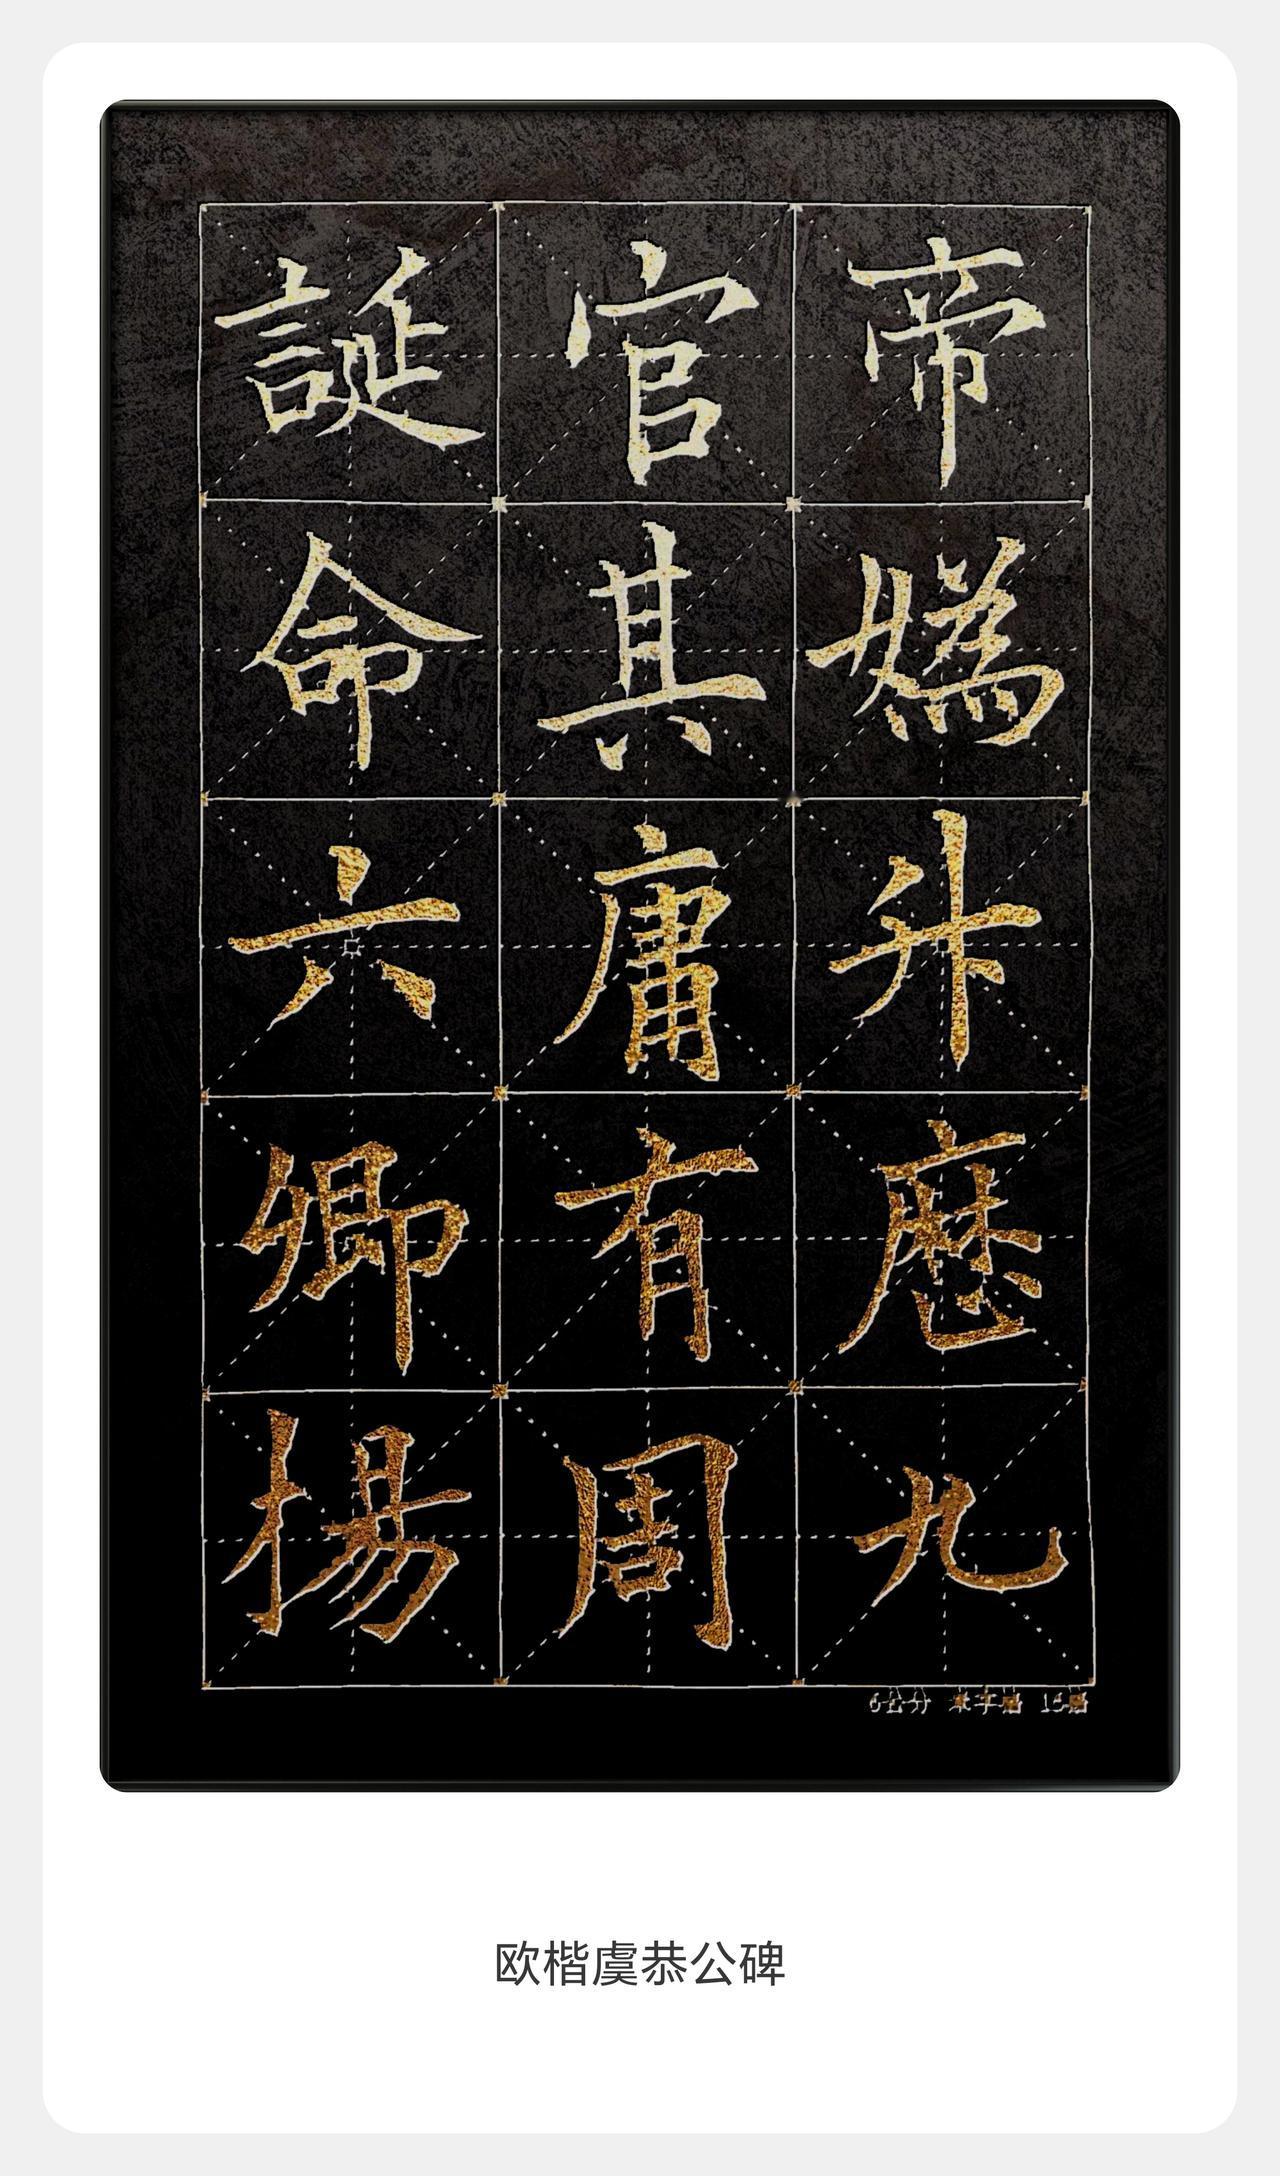 帝嬀升歷九
官其庸有周
誕命六卿揚
6公分 米字格 15格
欧楷虞恭公碑